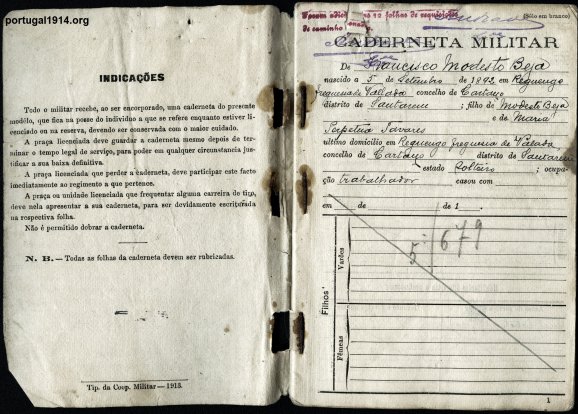 portugal1914.org
INDICAÇÕES
Todo o militar recebe, ao ser encorporado, uma caderneta do presente
modêlo, que fica na posse do indivíduo a que se refere enquanto estiver li-
cenciado ou na reserva, devendo ser conservada com o maior cuidado.
A praça licenciada deve guardar a caderneta mesmo depois de ter-
minar o tempo legal de serviço, para poder em qualquer circunstância jus-
tificar a sua baixa definitiva.
A praça licenciada que perder a caderneta, deve participar este facto
imediatamente ao regimento a que pertence.
A praça ou unidade licenciada que frequentar alguma carreira de tiro,
deve nela apresentar a sua caderneta, para ser devidamente escriturada
na respectiva folha.
Não é permitido dobrar a caderneta.
N. B. — Todas as folhas da caderneta devem ser rubricadas.
Tip. da Coop. Militar — 1913.
12 folhas de
de caminho
(Sêlo em branco)
CADERNETA MILITAR
De Francisco Modesto Beja
nascido a 5 de Setembro de 1893, em Reguengo
freguesia de Vallada concelho de Cartaxo
distrito de Santarem; filho de Modesto Beja
e de Maria
Perpetua Tavares
último domicílio em Reguengo freguesia de Valada
concelho de Cartaxo distrito de Santarem
estado Solteiro; ocupa-
ção trabalhador casou com
em de de 1
5 679
Filhos
Varões
Fêmeas
1